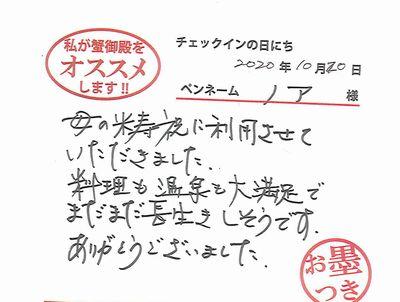 私が蟹御殿を
オススメ
します!!
チェックインの日にち
2020年10月20日
ペンネーム ノア 様
母の米寿祝に利用させて
いただきました。
料理も温泉も大満足で
まだまだ長生きしそうです。
ありがとうございました。
お墨
つき